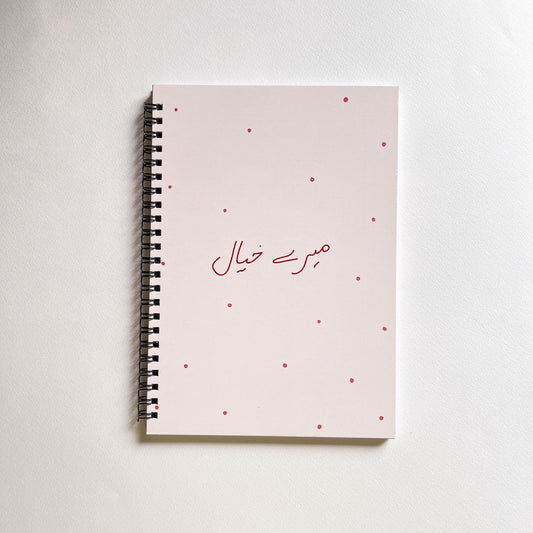 میرے خیال